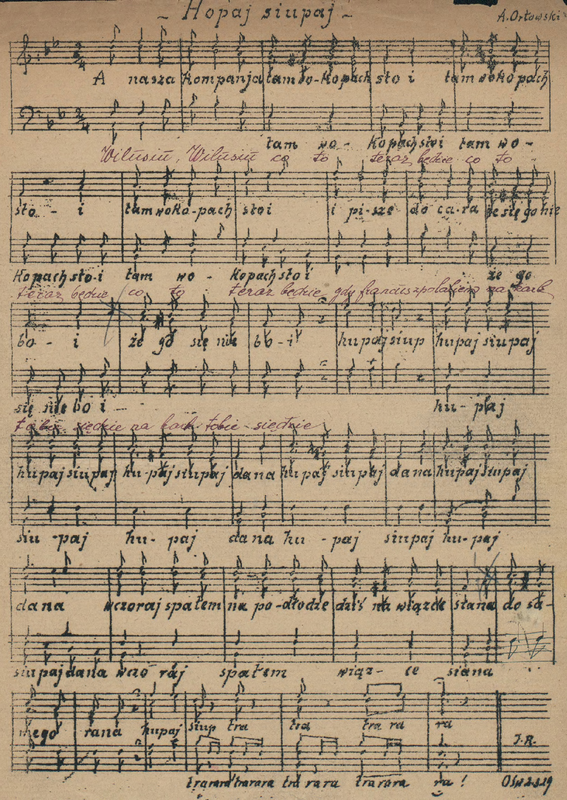 - Hopaj siupaj -
A. Orłowski
A nasza kompanja tam wo-kopach sto i tam wokopach
tam wo- kopachstoi tam wo-
Wilusiu, Wilusiu co to teraz będzie co to
sto- i tam wokopach stoi i pi-sze do ca-ra że się go nie
kopach sto-i tam wo- kopach sto i że go
teraz będzie co to teraz będzie gdy francuz polakiem na kark
bo- i że go się nie bo-i hupaj siup hupaj siupaj
się nie bo i hu- paj
tobie siędzie na kark tobie siędzie
hupaj siupaj hu-paj siupaj dana hupaj siupaj dana hupaj siupaj
siu-paj hu-paj dana hu-paj siupaj hu-paj
dana wczoraj spałem na po-dłodze dziś na wiązce siana do sa-
siupaj dana wczo raj spałem wiąz-ce siana
mego rana hupaj siup tra tra tra ra ra
J.R.
trarara trarara tra rara trarara ra!